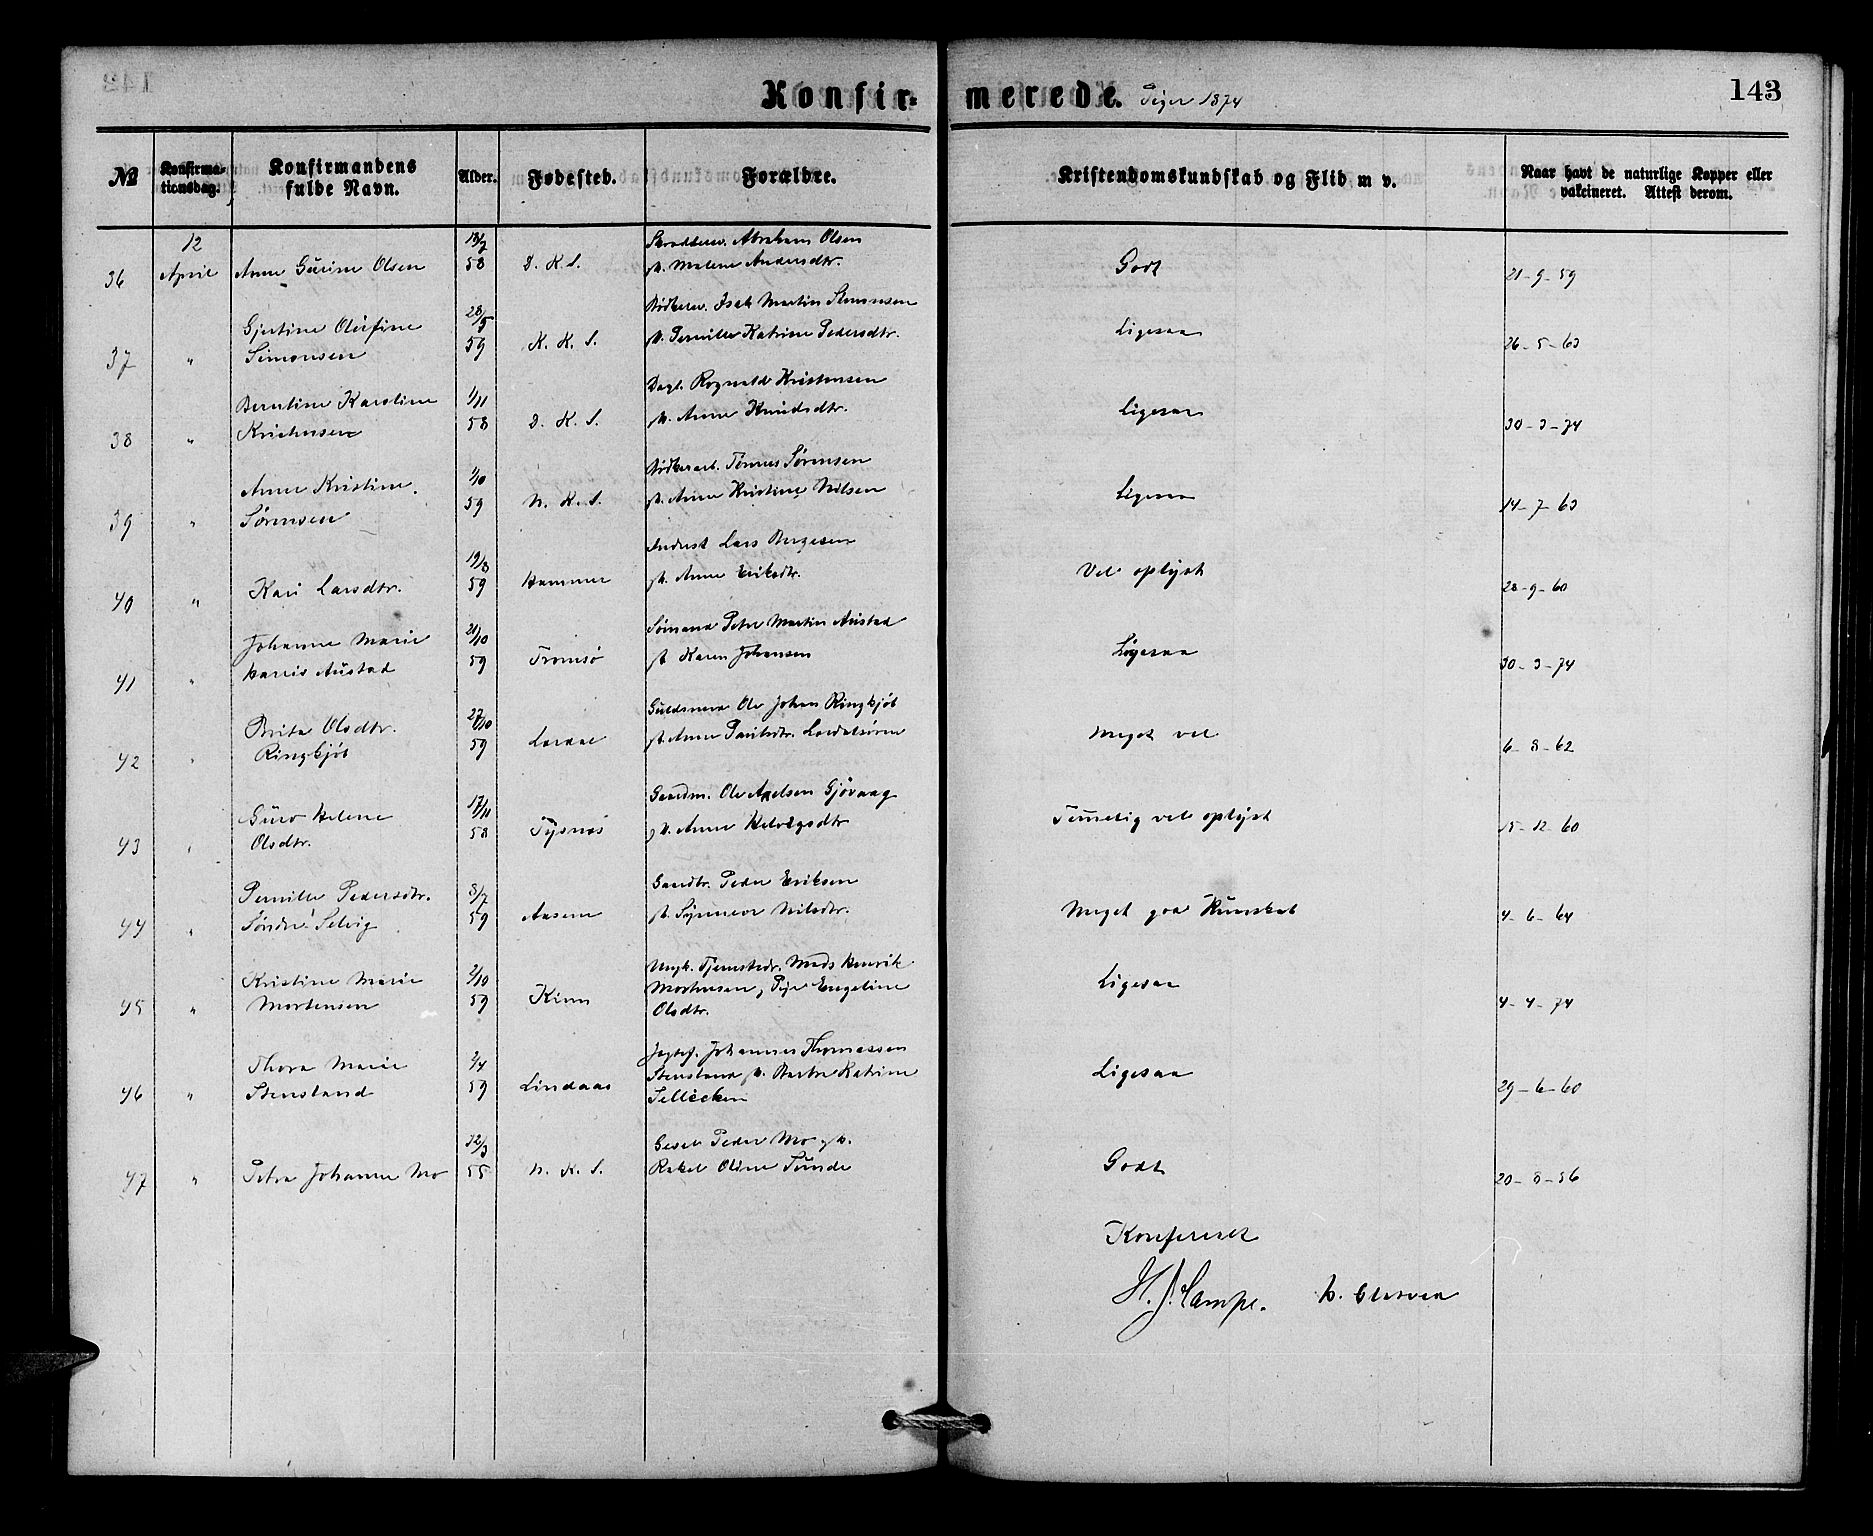 Konfir- merede. Piger 1874 143
№ Konfirmationsdag. Konfirmandens fulde Navn. Alder. Fødested. Forældre. Kristendomskundskab og Flid m v. Naar havt de naturlige Kopper eller vakcineret. Attest derom.
12 13/7 Abraham Olsen
36 April Anne Gurine Olsen 58 D. K. S. Malene Andersdtr. Godt 21-9-59
28/5 Isak Martin Simonsen
Gjertine Olufine
37 " Simonsen 59 K. K. S. Pernille Katrine Pedersdtr. Ligesaa 26-5-63
1/11 Dagl. Rognald Kristensen
Berntine Karoline
38 " Kristensen 58 D. K. S. Anne Knudsdtr. Ligesaa 30-3-74
1/10 Bødkerarb. Tønnes Sørensen
Anne Kristine
39 " Sørensen 59 N. K. S. Anne Kristine Nilsen Ligesaa 14-7-63
19/8 Lars Bergesen
40 " Kari Larsdtr. 59 Hammer Anne Eriksdtr. Vel oplyst 28-9-60
21/10 Sømand Peter Martin Austad
Johanne Marie
41 " Austad 59 Tromsø Karen Johansen Ligesaa 30-3-74
27/10 Guldsmed Ole Johan Ringkjøb
Brita Olsdtr.
42 " Ringkjøb 59 Lærdal Anne Lærdalsøren Meget vel 6-8-62
17/11 Gaardm. Ole Axelsen Gjøvaag
Guro Helene
43 " Olsdtr. 58 Tysnøs Anne Temmelig vel oplyst 15-12-60
8/7 Peder Eriksen
Pernille Pedersdtr.
44 " Søndre Selvig 59 Ausevi Synneve Nilsdtr. Meget god Kunskab 4-6-64
2/10 Ungk. Mads Henrik
Kristine Marie Mortensen, Pige Engeline
45 " Mortensen 59 Kinn Olsdtr. Ligesaa 4-4-74
2/4 Johannes Thomassen
Thora Marie Stensland Katrine
46 " Stensland 59 Lindaas Ligesaa 29-6-60
12/3 Gesel Peder Mo
47 " Petra Johanne Mo 55 N. K. S. Rakel Oline Tunde Godt 20-8-56
Konfereret
H. J. Campe.